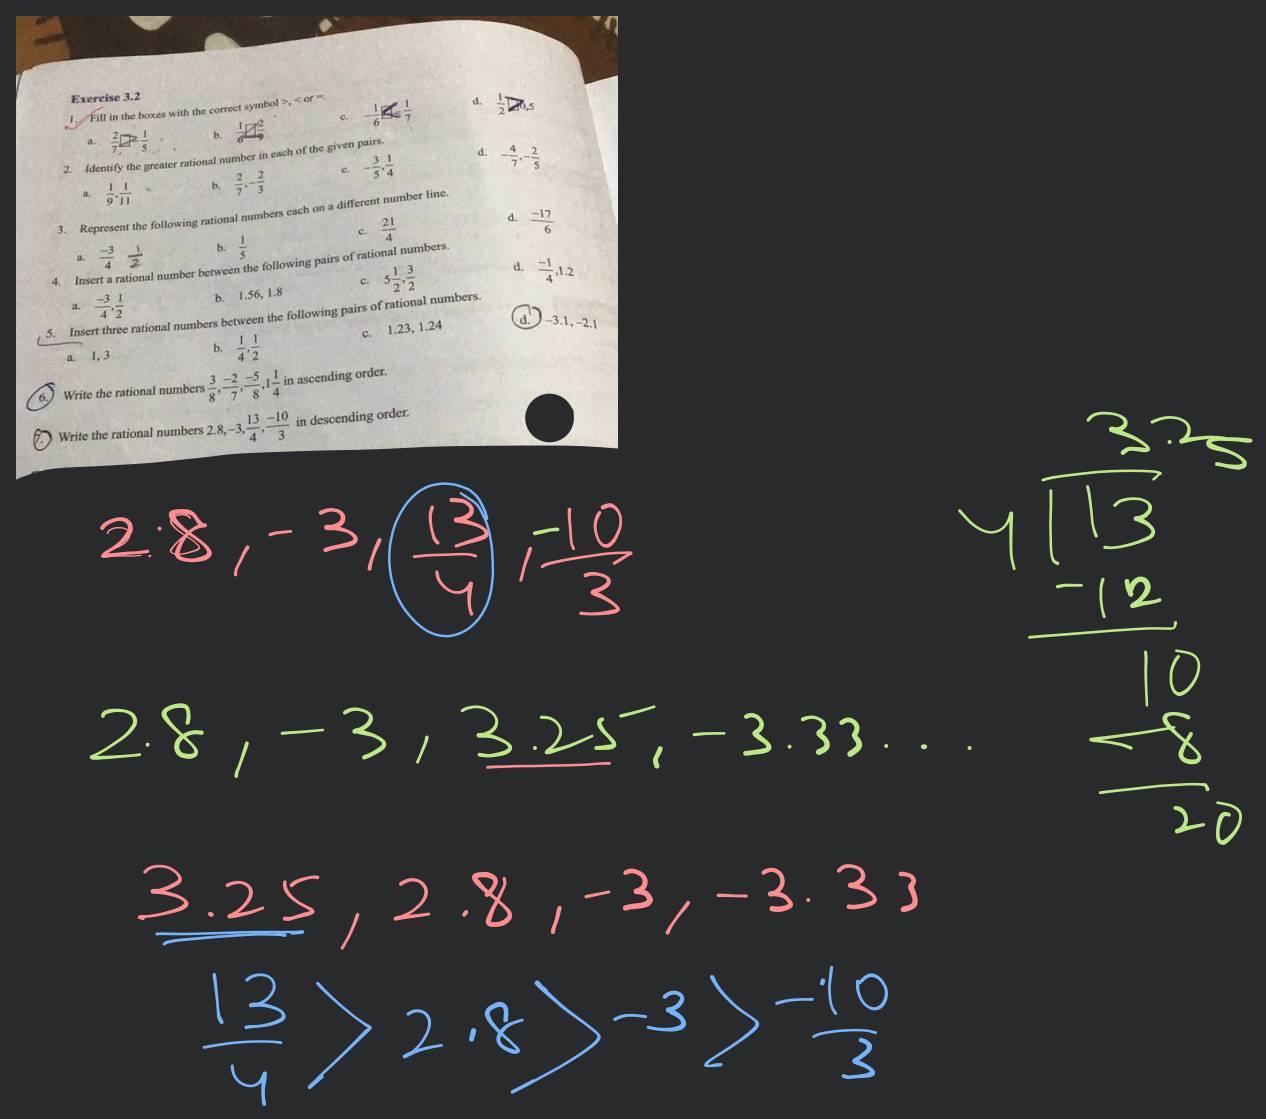 Exercise 3.2
1. Fill in the boxes with the correct symbol >, < or =.
a. 2/7 > 1/5 b. 1/6 2/9 c. -1/6 < 1/7 d. 1/2 0.5
2. Identify the greater rational number in each of the given pairs.
a. 1/9, 1/11 b. 2/7, -2/3 c. -3/5, 1/4 d. -4/7, -2/5
3. Represent the following rational numbers each on a different number line.
a. -3/4 1/2 b. 1/5 c. 21/4 d. -17/6
4. Insert a rational number between the following pairs of rational numbers.
a. -3/4, 1/2 b. 1.56, 1.8 c. 5 1/2, 3/2 d. -1/4, 1.2
5. Insert three rational numbers between the following pairs of rational numbers.
a. 1, 3 b. 1/4, 1/2 c. 1.23, 1.24 d. -3.1, -2.1
6. Write the rational numbers 3/8, -2/7, -5/8, 1 1/4 in ascending order.
7. Write the rational numbers 2.8, -3, 13/4, -10/3 in descending order.
2.8, -3, 13/4, -10/3
2.8, -3, 3.25, -3.33...
3.25, 2.8, -3, -3.33
13/4 > 2.8 > -3 > -10/3
3.25
4 | 13
-12
10
-8
20